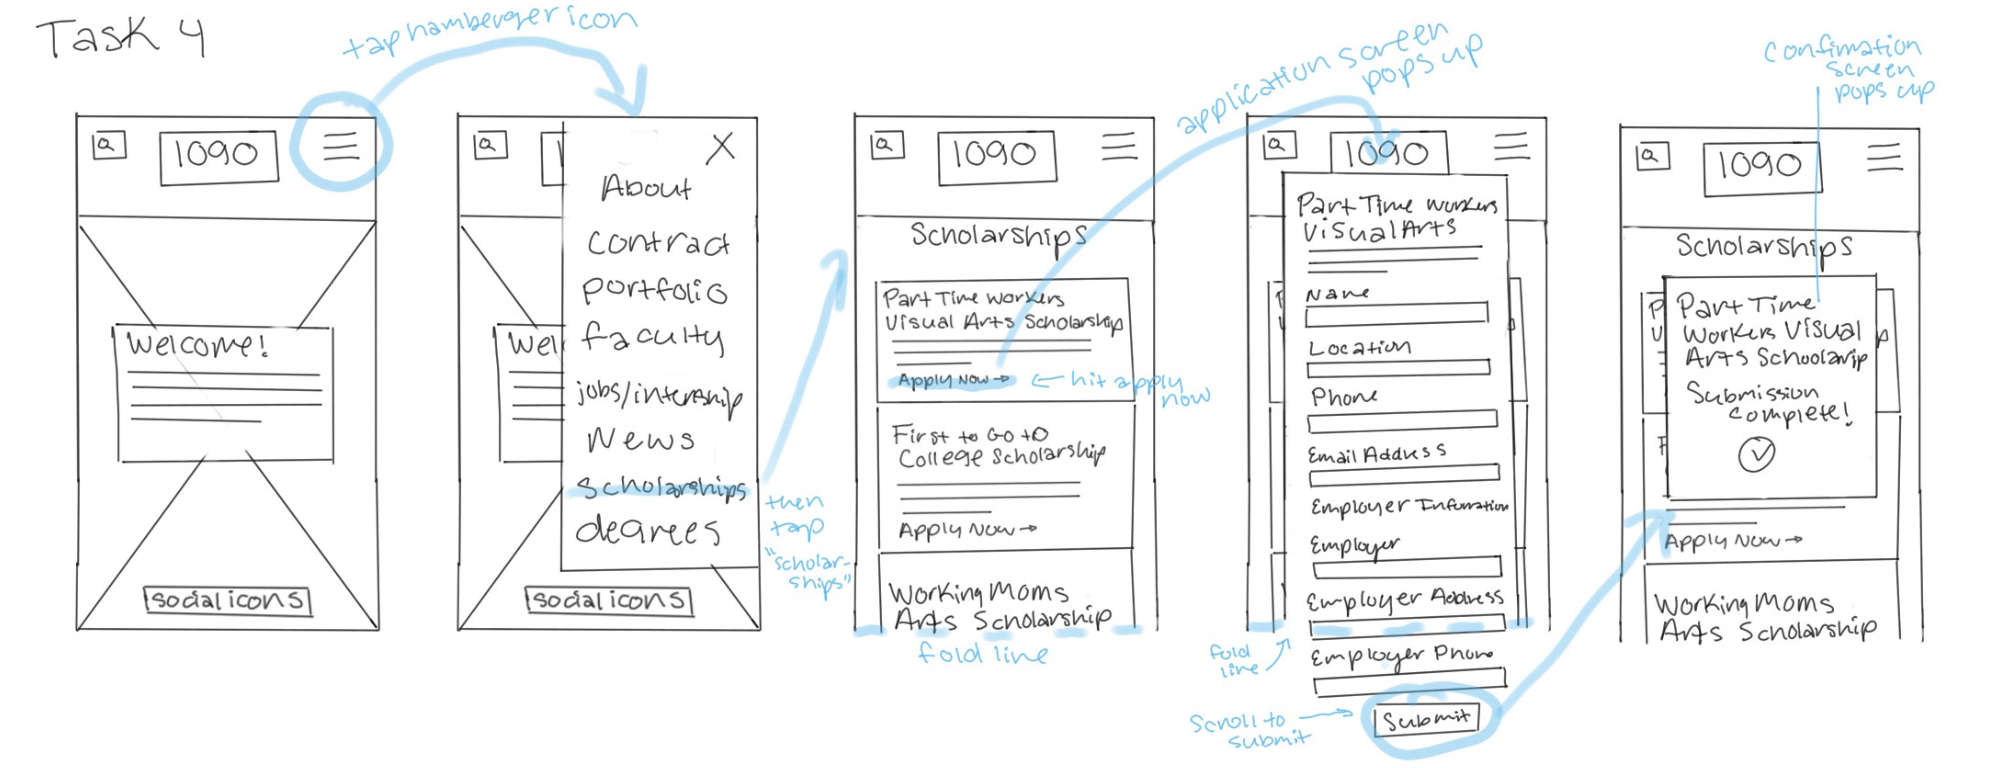 Task 4
tap hamberger icon
a
1090
Welcome!
social icons
a
1
X
About
contract
portfolio
faculty
jobs/intership
News
scholarships
degrees
Wel
social icons
then
tap
"scholar-
ships"
a
1090
Scholarships
Part Time Workers
Visual Arts Scholarship
Apply Now →
← hit apply
now
First to Go to
College Scholarship
Apply Now →
Working Moms
Arts Scholarship
fold line
application screen
pops up
a
1090
Part Time Workers
Visual Arts
Name
Location
Phone
Email Address
Employer Information
Employer
Employer Address
Employer Phone
Submit
fold
line
Scroll to
submit
confimation
screen
pops up
a
1090
Scholarships
Part Time
Workers Visual
Arts Schoolarip
Submission
complete!
Apply Now →
Working Moms
Arts Scholarship